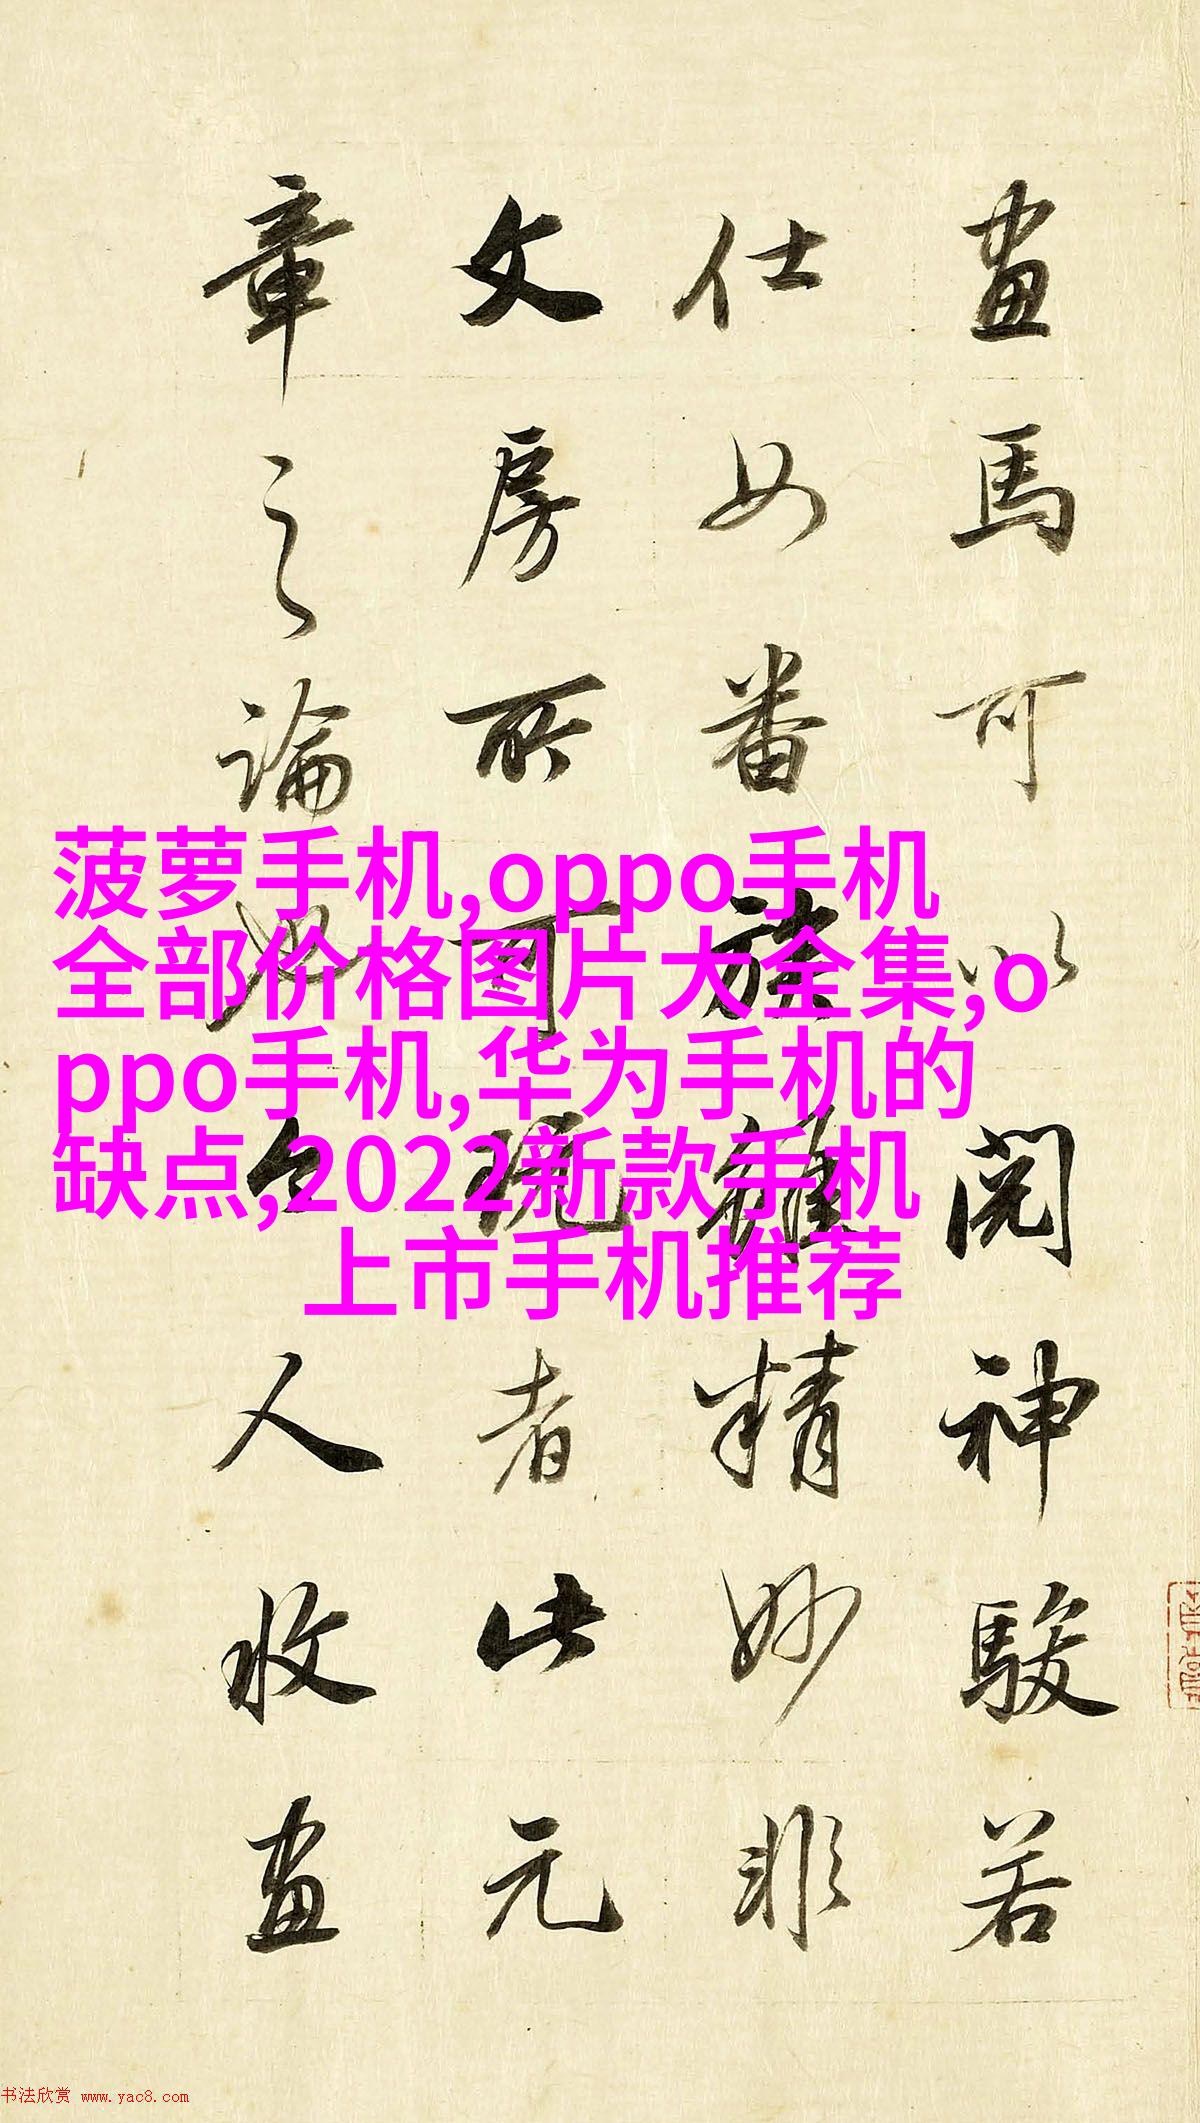 畫馬可以閱神駿若
仕女番族雖精妙非
文房所可玩者此元
章之論也今人收畫
菠萝手机,oppo手机
全部价格图片大全集,o
ppo手机,华为手机的
缺点,2022新款手机
上市手机推荐
书法欣赏 www.yac8.com